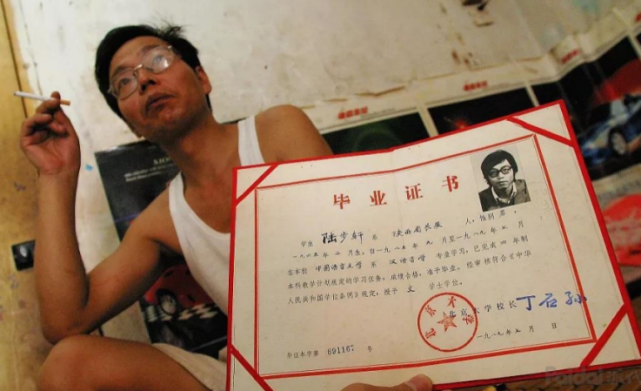 毕业证书
学生 陆步轩 系 陕西省长安 人，性别 男，
一九六五年 月生，自一九八五年 九 月至一九八九年 月
在本校 中国语言文学 系 专业学习，已完成 四 年制
本科教学计划规定的学习任务，成绩合格，准予毕业。经审核符合《中华
人民共和国学位条例》规定，授予 文 学士学位。
北京大学校长 丁石孙
毕证本字第 891167 号
一九八九年 月 日